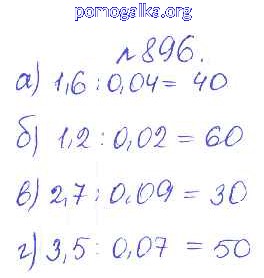 pomogalka.org
№896.
а) 1,6 : 0,04 = 40
б) 1,2 : 0,02 = 60
в) 2,7 : 0,09 = 30
г) 3,5 : 0,07 = 50